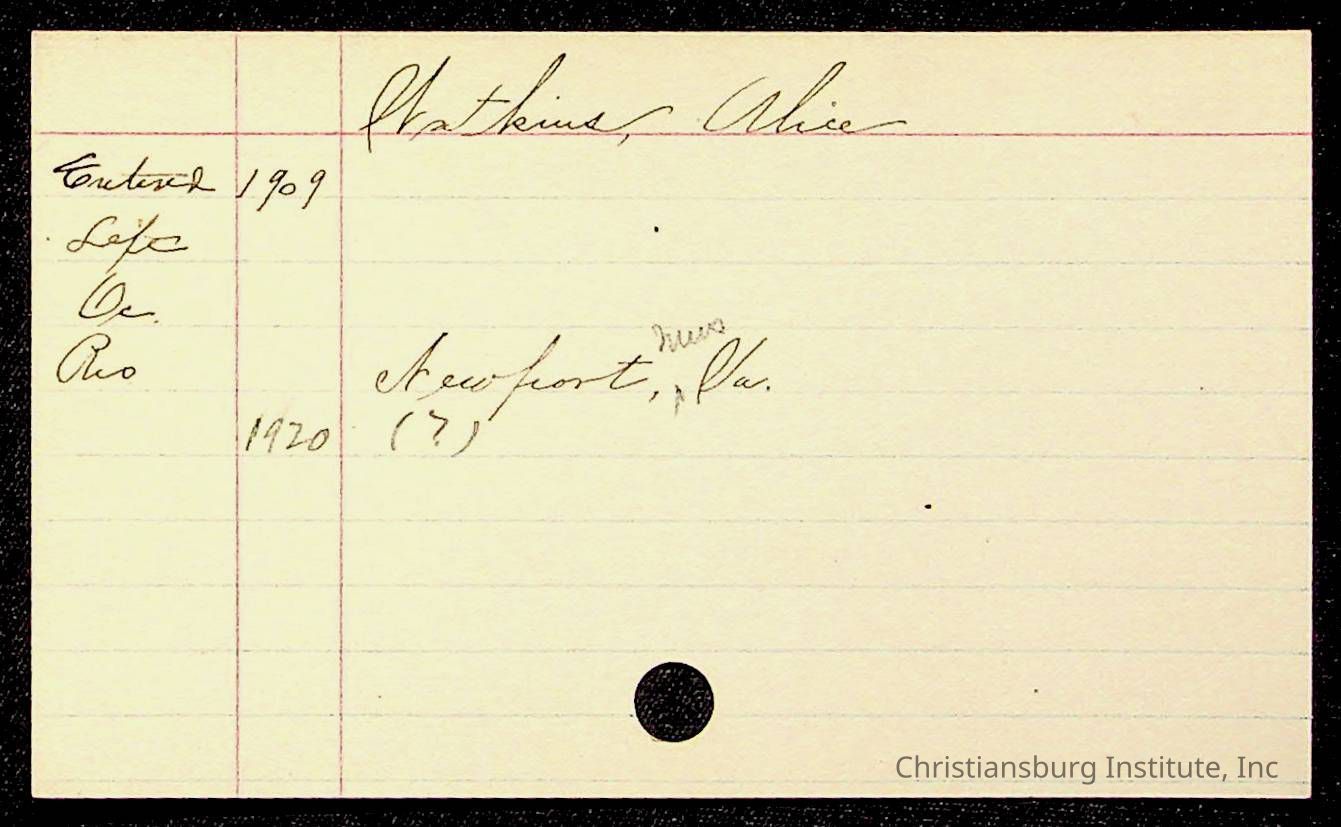 Watkins, Alice
Entered 1909
Left
Oc.
Res Newport, News Va.
1920 (?)
Christiansburg Institute, Inc